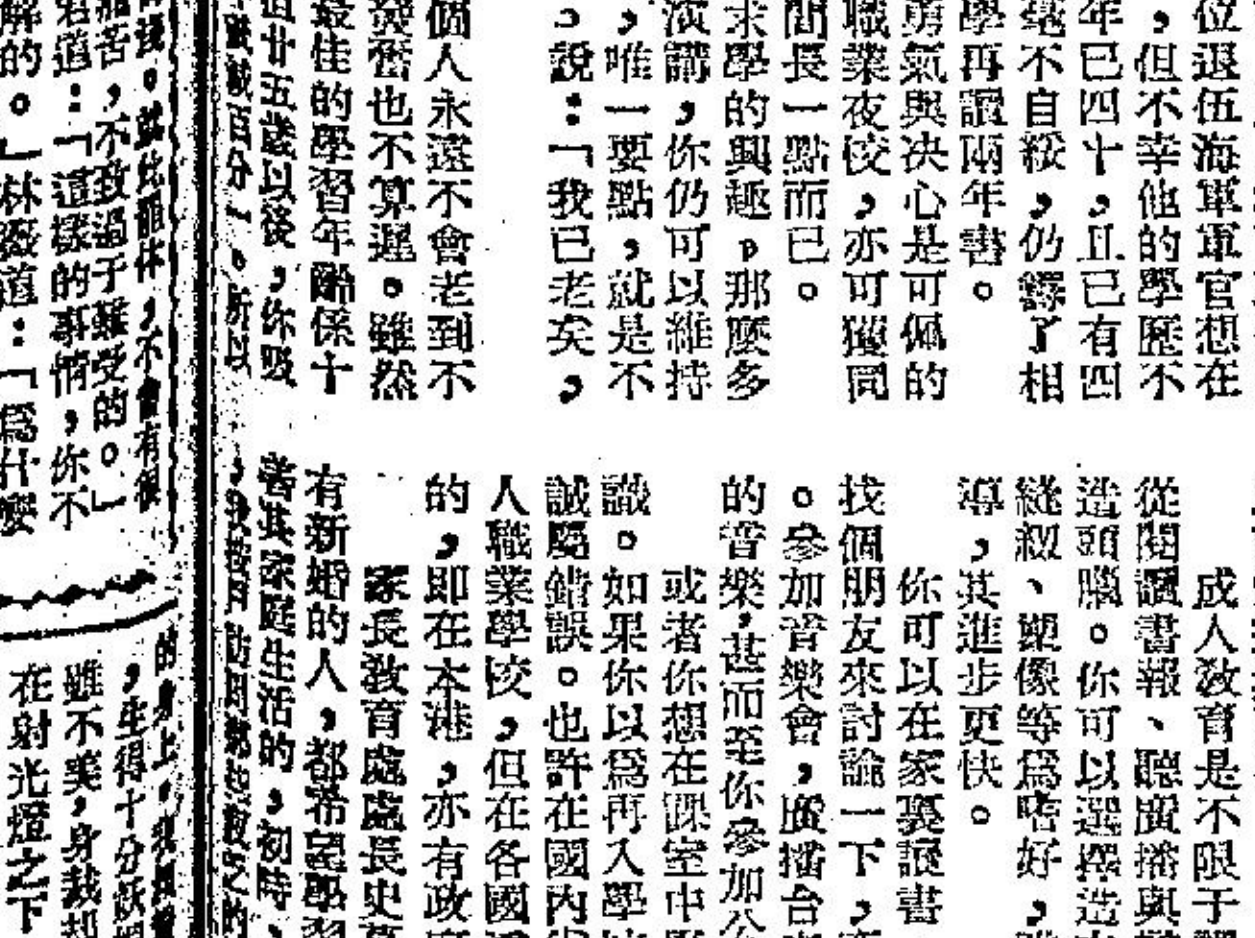 位退伍海軍軍官想在
,但不幸他的學歷不
年已四十,且已有四
毫不自綏,仍了相
學再讀兩年書。
勇氣與决心是可佩的
職業夜校,亦可獲同
間長一點而已。
求學的興趣。那麼多
演講,你仍可以維持
,唯一要點,就是不
說:「我已老矣,
個人永遠不會老到不
發奮也不算遲。雖然
最佳的學習年齡係十
但廿五歲以後,你吸
百分一。所以
成人教育是不限于
從閱讀書報、聽廣播與
造頭臘。你可以選擇造
縫紉、塑像等爲嗜好,
導,其進步更快。
你可以在家裏讀書
找個朋友來討論一下,
。參加音樂會,廣播台
的音樂,甚而至你參加公
或者你想在課室中
識。如果你以爲再入學
誠屬錯誤。也許在國內
人職業學校,但在各國
的,即在本港,亦有政
家長教育處處長史
有新婚的人,都希望學習
着其家庭生活的,初時,
,不會有很
苦,不致過于難受的。」
道:「這樣的事情,你不
解的。」林道:「爲什麼
的身上,我
,生得十分妖
雖不美,身裁却
在射光燈之下